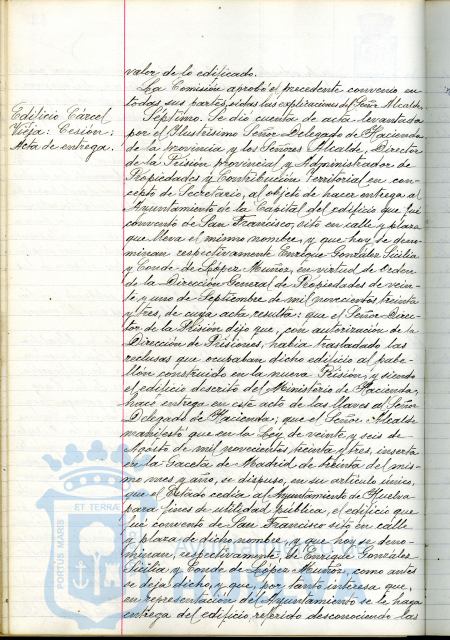 valor de lo edificado.
La Comisión aprobó el precedente convenio en
todas sus partes, oidas las explicaciones del Señor Alcalde.
Edificio Cárcel
Vieja: Cesión:
Acta de entrega.
Séptimo. Se dió cuenta de acta levantada
por el Ilustrísimo Señor Delegado de Hacienda
de la provincia y los Señores Alcalde, Director
de la Prisión provincial y Administrador de
Propiedades y Contribución Territorial en con-
cepto de Secretario, al objeto de hacer entrega al
Ayuntamiento de la Capital del edificio que fué
convento de San Francisco, sito en calle y plaza
que lleva el mismo nombre, y que hoy se deno-
minan respectivamente Enrique Gonzáler Sicilia
y Conde de López Muñoz, en virtud de Orden
de la Dirección General de Propiedades de vein-
te y uno de Septiembre de mil novecientos treinta
y tres, de cuya acta resulta: que el Señor Direc-
tor de la Prisión dijo que, con autorización de la
Dirección de Prisiones, habia trasladado las
reclusas que ocupaban dicho edificio al pabe-
llón construido en la nueva Prisión, y siendo
el edificio descrito del Ministerio de Hacienda,
hacé entrega en este acto de las llaves al Señor
Delegado de Hacienda; que el Señor Alcalde
manifestó que en la Ley de veinte y seis de
Agosto de mil novecientos treinta y tres, inserta
en la Gaceta de Madrid de treinta del mis-
mo mes y año, se dispuso, en su artículo único,
que el Estado cedia al Ayuntamiento de Huelva
para fines de utilidad pública, el edificio que
fué convento de San Francisco sito en calle
y plaza de dicho nombre, y que hoy se deno-
minan respectivamente de Enrique Gonzáler
Sicilia y Conde de López Muñoz, como antes
se deja dicho, y que por tanto interesa que,
en representación del Ayuntamiento se le haga
entrega del edificio referido desconociendo las
PORTUS MARIS ET TERRA